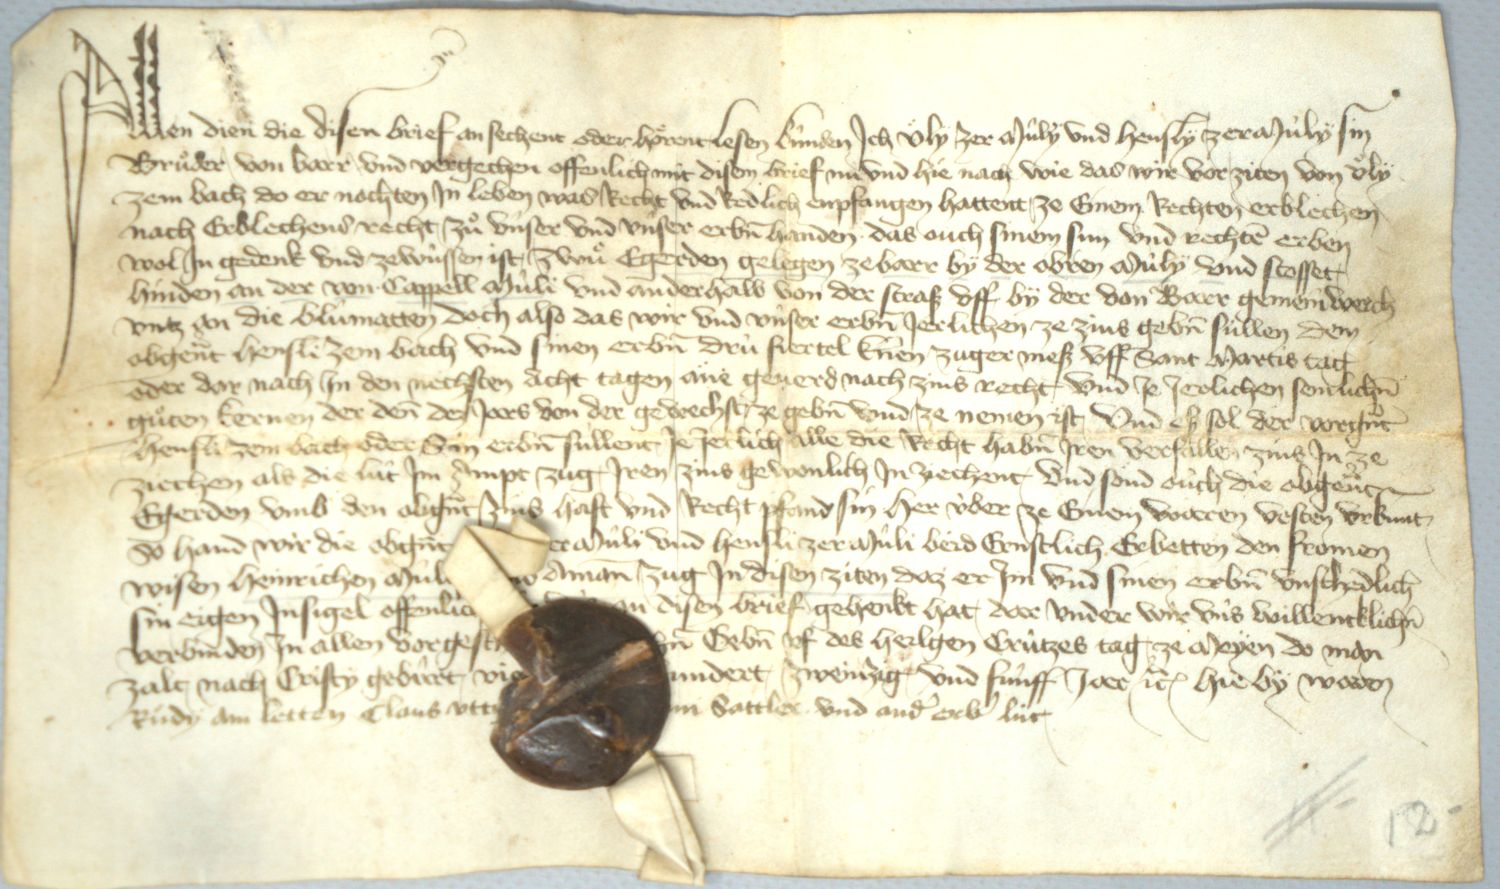 Allen dien die disen brief an sechent oder hörent lesen künden Ich ůly zer Mùly vnd Hensly zer Mùly sin
Brůder von barr vnd vergechen offenlich mit disem brief nu vnd hie nach wie das wir vor ziten von ůly
zem bach do er nochten In leben was Recht vnd Redlich enpfangen hattent ze Einem Rechten erblechen
nach Erblechens recht zů vnser vnd vnser erbn̄ handen das ouch sinem sun vnd rechtē erben
wol In gedenk vnd ze wùssen ist zwů Egerden gelegen ze barr by der obren Mùly vnd stosset
hinden an der von Cappell Mùli vnd anderhalb von der straß vff by der von Barr gemeinwerch
vntz an die blùmatten doch also das wir vnd vnser erbn̄ Jerlichen ze zins gebn̄ sùllen dem
obgen̄t Hensli zem bach vnd sinen erbn̄ drù fiertel k̄nen zuger meß vff Sant Martis tag
oder dar nach In den nechsten ächt tagen āne geuerd nach zins recht vnd Je Jerlichen
gůten kernen der den̄ des Jars von der gewechst ze gebn̄ vnd ze nemen ist Vnd es sol der vorgn̄t
Hensli zem bach oder Sin erbn̄ sùllent Je Jerlich alle die Recht habn̄ Iren verfallen zins In ze
ziechen als die lùt Im Ampt zug Iren zins gewonlich In ziechent Vnd sönd öuch die obgen̄t
Egerden vmb den obgn̄t zins haft vnd Recht pfand sin Her ùber ze Einem waren vesten vrkunt
So hand wir die obgn̄t er Mùli vnd Hensli zer Mùli beid Ernstlich Erbetten den fromen
wisen Heinrichen Mùl Aman̄ Zug In disen ziten daz er Im vnd sinen erbn̄ vnschedlich
sin eigen Insigel offenlich an disen brief gehenkt hat dar vnder wir vns willenklichn̄
verbinden In allen vorgesch n̄ Gebn̄ vf des heilgen Crùtzes tag ze Meyen do man
zalt nach Cristy gebùrt vie undert zweinzig vnd fùnff Jar Hie by waren
Rùdy am letten Claus vtti in Sattler vnd and erb lùt
12